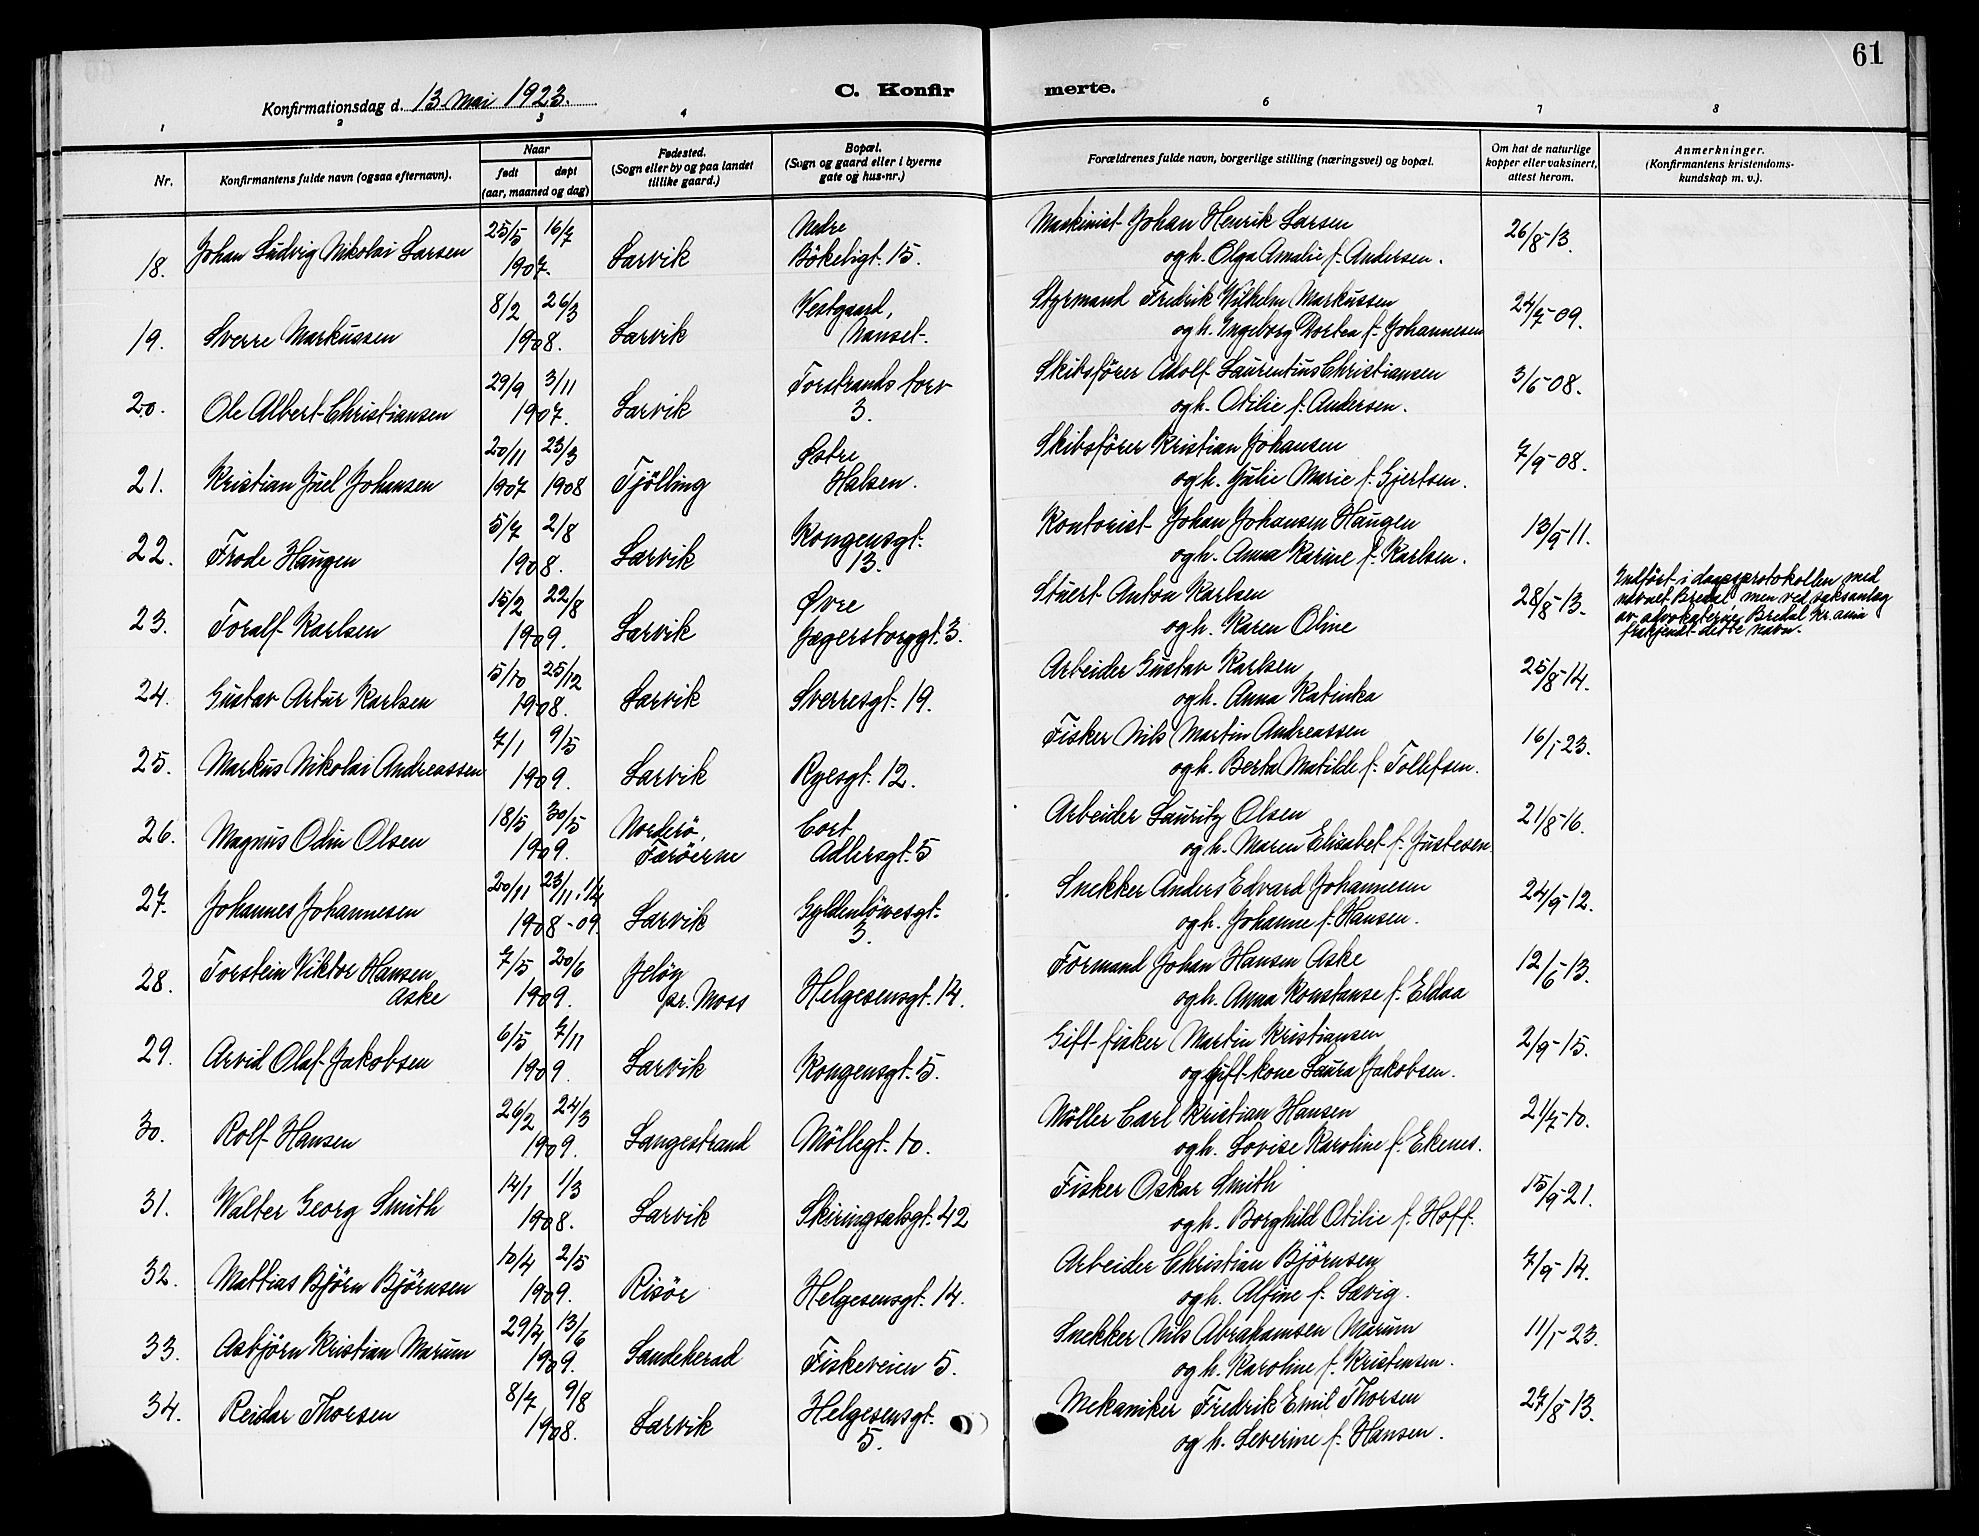 61
Konfirmationsdag d. 13 Mai 1923.
C. Konfirmerte.
1 2 3 4 6 7 8
Nr.
Konfirmantens fulde navn (ogsaa efternavn).
Naar
født døpt
(aar, maaned og dag)
Fødested.
(Sogn eller by og paa landet
tillike gaard.)
Bopæl.
(Sogn og gaard eller i byerne
gate og hus-nr.)
Forældrenes fulde navn, borgerlige stilling (næringsvei) og bopæl.
Om hat de naturlige
kopper eller vaksinert,
attest herom.
Anmerkninger.
(Konfirmantens kristendoms-
kundskap m. v.).
18. Johan Ludvig Nikolai Larsen 25/5 16/7 1907. Larvik Nedre Bökeligt. 15. Maskinist Johan Henrik Larsen 26/8-13.
og h. Olga Amalie f. Andersen.
19. Sverre Markussen 8/2 26/3 1908. Larvik Vestgaard, Nanset. Styrmand Fredrik Vilhelm Markussen 24/7-09.
og h. Ingeborg Dortea f. Johannesen
20. Ole Albert Christiansen 29/9 3/11 1907. Larvik Torstrands torv 3. Skibsfører Adolf Laurentius Christiansen 3/6-08.
og h. Otilie f. Andersen.
21. Kristian Juel Johansen 20/11 1907 23/3 1908 Tjölling Østre Halsen. Skibsfører Kristian Johansen 7/9-08.
og h. Julie Marie f. Gjertsen.
22. Frode Haugen 5/7 2/8 1908. Larvik Kongensgt. 13. Kontorist Johan Johansen Haugen 13/9-11.
og h. Anna Karine f. Karlsen.
23. Toralf Karlsen 15/2 22/8 1909. Larvik Øvre Jegersborggt. 3. Stuert Anton Karlsen 28/8-13. Indført i daapsprotokollen med
og h. Karen Oline navnet Bredal, men ved saksanlæg
av advokaterne Bredal Kr.ania
frakjendt dette navn.
24. Gustav Artur Karlsen 5/10 25/12 1908. Larvik Sverresgt. 19. Arbeider Gustav Karlsen 25/8-14.
og h. Anna Katinka
25. Markus Nikolai Andreassen 7/1 9/5 1909. Larvik Ryesgt. 12. Fisker Nils Martin Andreassen 16/1-23.
og h. Berta Matilde f. Tollefsen.
26. Magnus Odin Olsen 18/5 30/5 1909. Norderö, Færöerne Cort Adlersgt. 5 Arbeider Lauritz Olsen 21/8-16.
og h. Maren Elisabet f. Justesen.
27. Johannes Johannesen 20/11 23/11, 1/4 1908-09. Larvik Gyldenlövesgt. 3. Snekker Anders Edvard Johannesen 24/9-12.
og h. Johanne f. Hansen.
28. Torstein Viktor Hansen Aske 7/5 20/6 1909. Jelöy pr. Moss Helgesensgt. 14. Formand Johan Hansen Aske 12/6-13.
og h. Anna Konstanse f. Eldaa
29. Arvid Olaf Jakobsen 6/5 7/11 1909. Larvik Kongensgt. 5. Gift fisker Martin Kristiansen 2/9-15.
og gift kone Laura Jakobsen.
30. Rolf Hansen 26/2 24/3 1909. Langestrand Möllegt. 10. Möller Carl Kristian Hansen 21/7-10.
og h. Lovise Karoline f. Ekenes.
31. Walter Georg Smith 14/1 1/3 1908. Larvik Skiringsalsgt. 42 Fisker Oskar Smith 15/9-21.
og h. Borghild Otilie f. Hoff.
32. Mattias Björn Björnsen 10/4 2/5 1909. Risör Helgesensgt. 14. Arbeider Christian Björnsen 7/9-14.
og h. Alfine f. Sævig.
33. Asbjörn Kristian Marum 29/4 13/6 1909. Sandeherad Fiskeveien 5. Snekker Nils Abrahamsen Marum 11/1-23.
og h. Karoline f. Kristensen.
34. Reidar Thorsen 8/7 9/8 1908. Larvik Helgesensgt. 5. Mekaniker Fredrik Emil Thorsen 27/8-13.
og h. Severine f. Hansen.